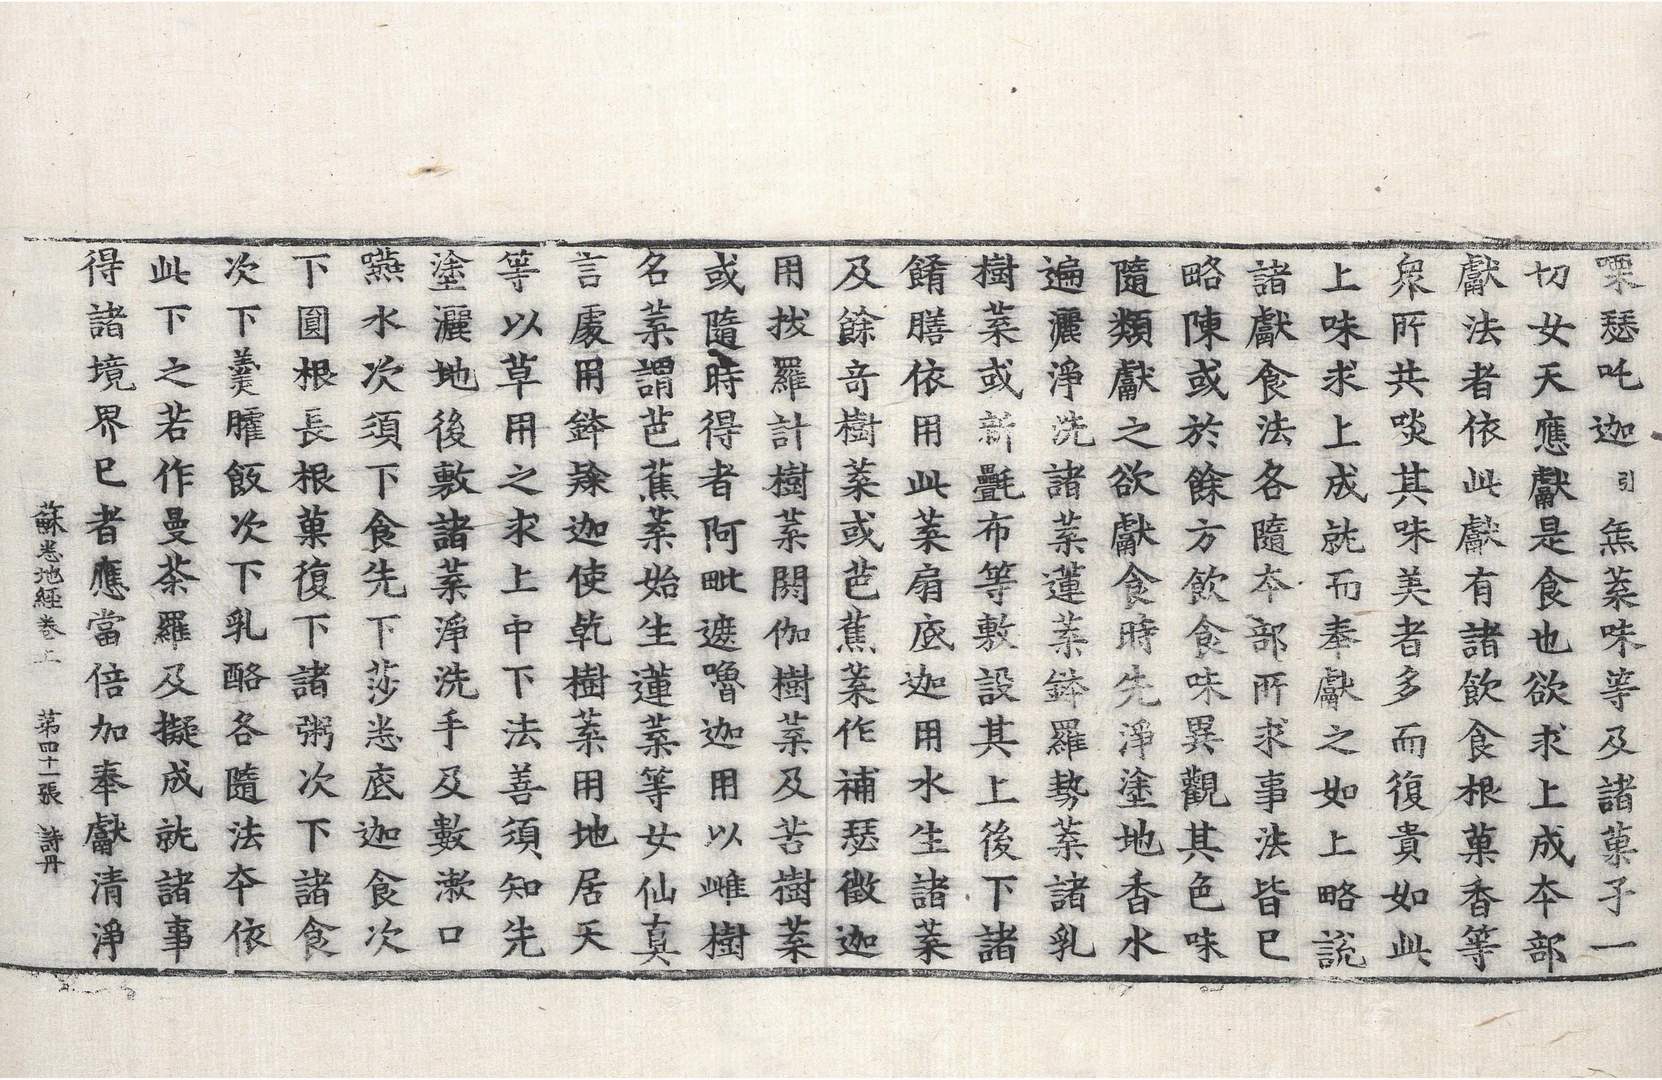 㗚瑟吒迦引無葉味等及諸菓子一
切女天應獻是食也欲求上成夲部
獻法者依此獻有諸飲食根菓香等
衆所共啖其味美者多而復貴如此
上味求上成就而奉獻之如上略說
諸獻食法各隨夲部所求事法皆已
略陳或於餘方飲食味異觀其色味
隨類獻之欲獻食時先淨塗地香水
遍灑淨洗諸葉蓮葉鉢羅勢葉諸乳
樹葉或新㲲布等敷設其上後下諸
餚膳依用此葉扇底迦用水生諸葉
及餘竒樹葉或芭蕉葉作補瑟徵迦
用拔羅計樹葉閼伽樹葉及苦樹葉
或隨時得者阿毗遮嚕迦用以雌樹
名葉謂芭蕉葉始生蓮葉等女仙真
言處用鉢䟦迦使乾樹葉用地居天
等以草用之求上中下法善須知先
塗灑地後敷諸葉淨洗手及數漱口
嚥水次須下食先下莎悉底迦食次
下圓根長根菓復下諸粥次下諸食
次下羹臛飯次下乳酪各隨法夲依
此下之若作曼荼羅及擬成就諸事
得諸境界已者應當倍加奉獻清淨
蘇悉地經卷上　第四十一張　詩丹